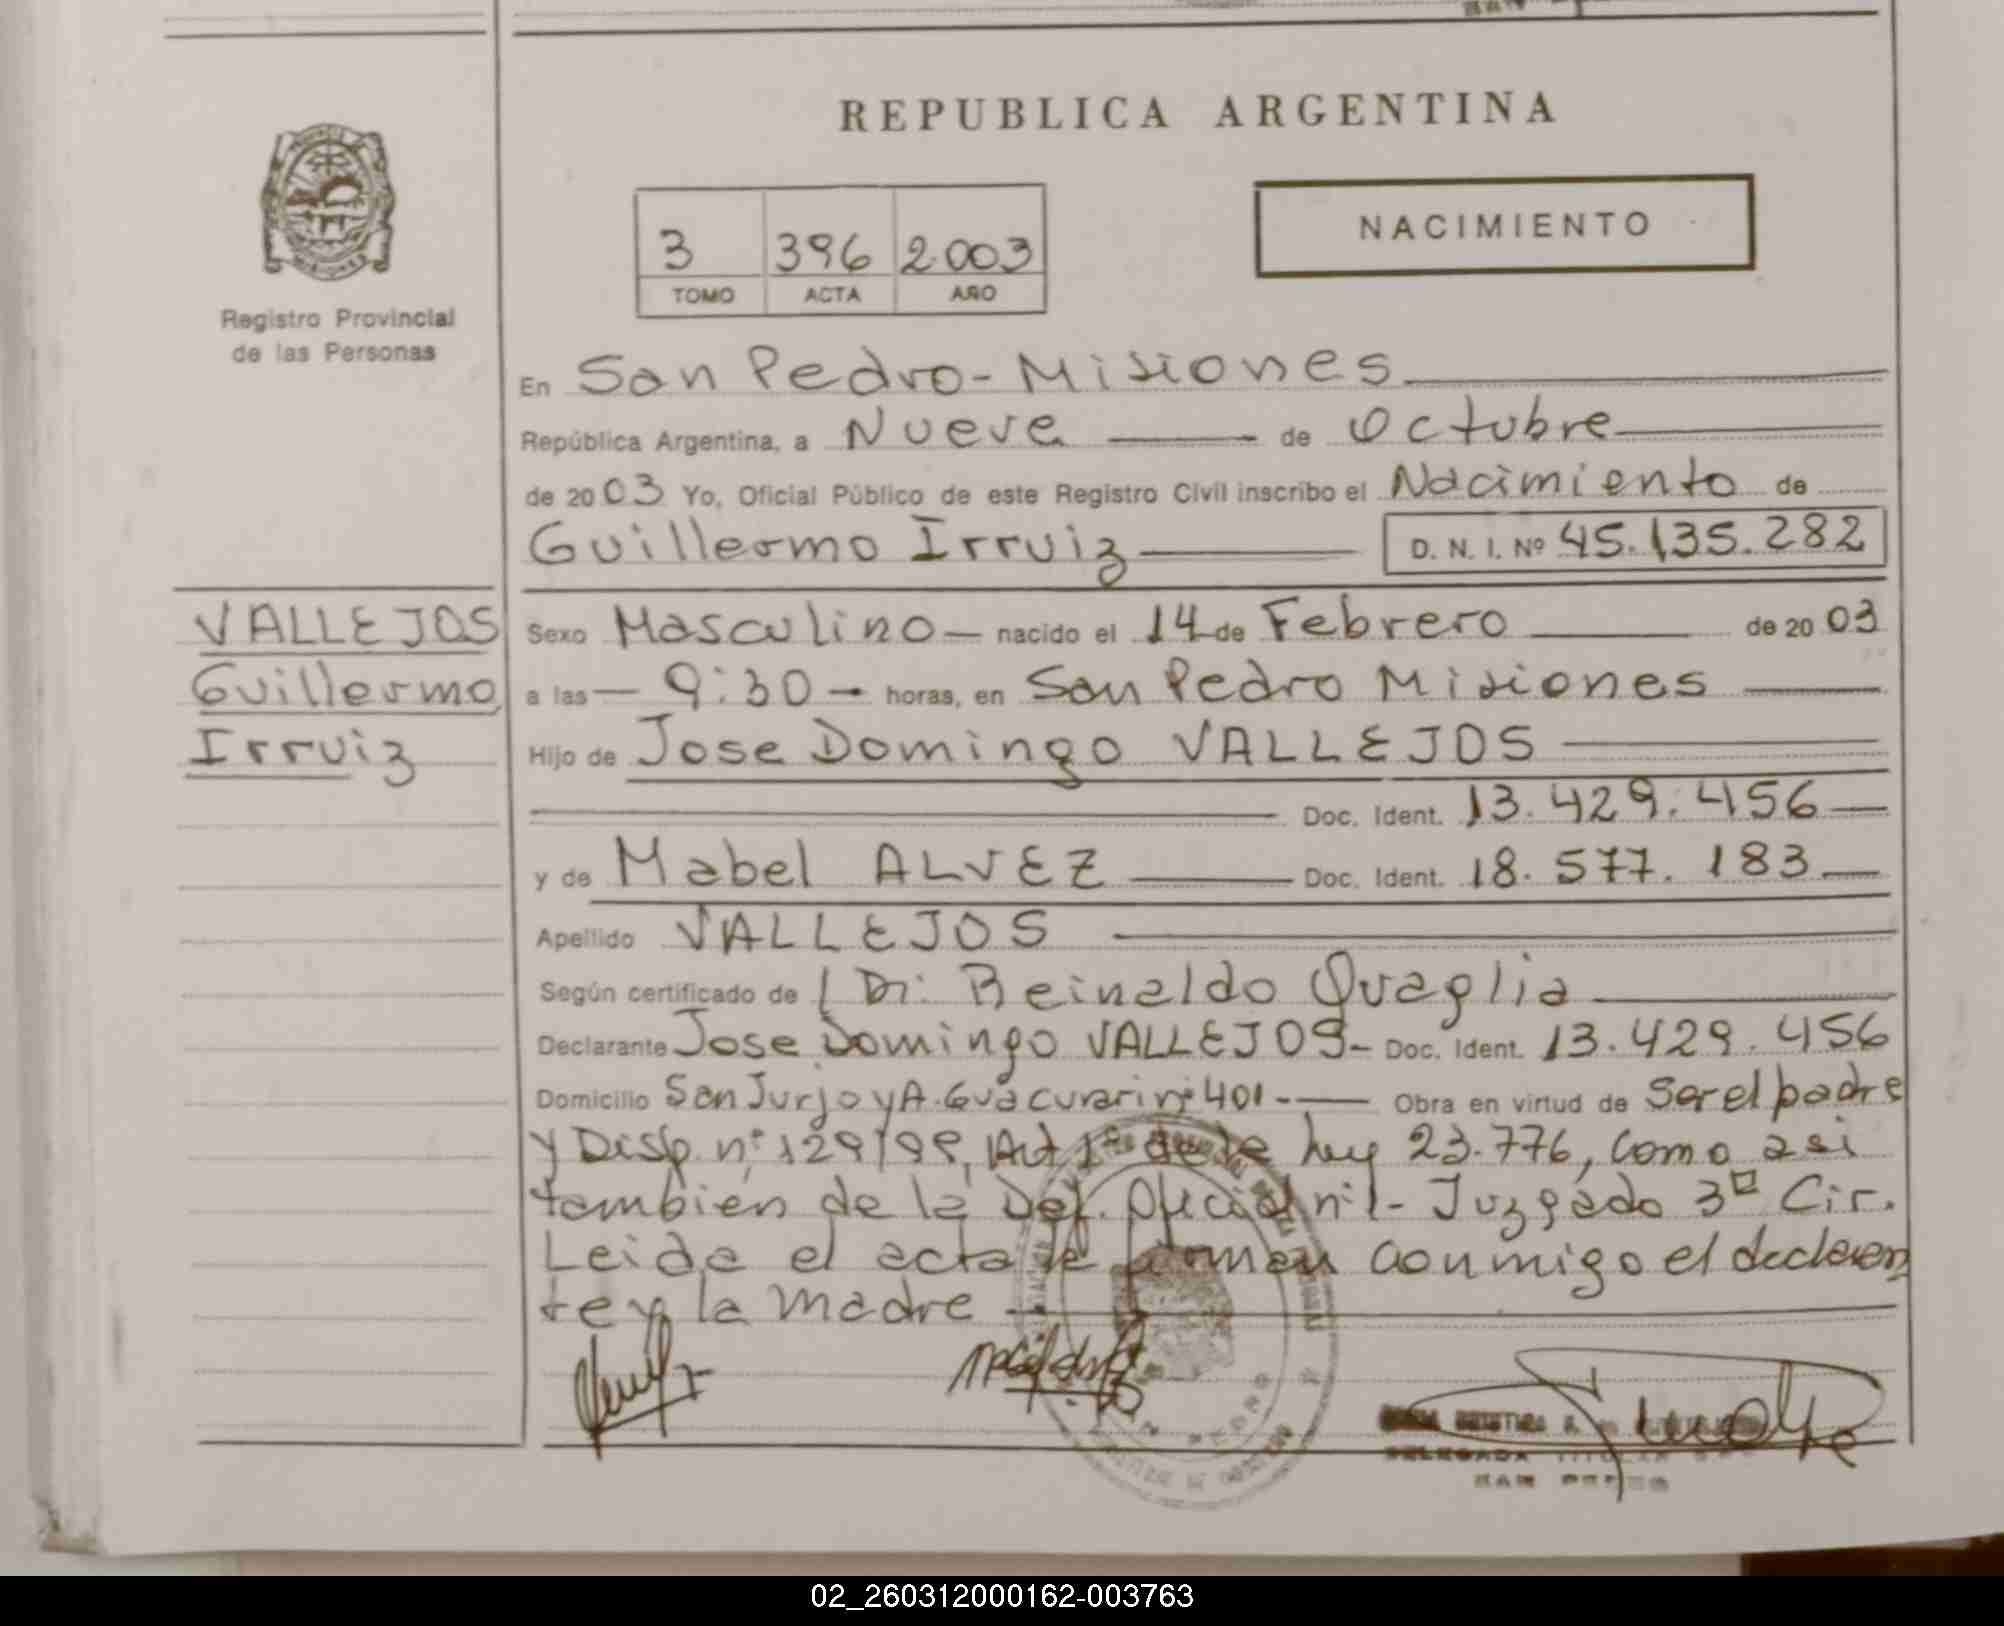 REPUBLICA ARGENTINA
NACIMIENTO
3 396 2.003
TOMO ACTA AÑO
Registro Provincial
de las Personas
En San Pedro - Misiones
República Argentina, a Nueve de Octubre
de 2003 Yo, Oficial Público de este Registro Civil inscribo el Nacimiento de
Guillermo Irruiz D. N. I. Nº 45.135.282
VALLEJOS
Guillermo
Irruiz
Sexo Masculino nacido el 14 de Febrero de 2003
a las 9:30 horas, en San Pedro Misiones
Hijo de Jose Domingo VALLEJOS
Doc. Ident. 13.429.456
y de Mabel ALVEZ Doc. Ident. 18.577.183
Apellido VALLEJOS
Según certificado de Dr. Reinaldo Quaglia
Declarante Jose Domingo VALLEJOS - Doc. Ident. 13.429.456
Domicilio San Jurjo y A. Guacurari nº 401 - Obra en virtud de Ser el padre
y Disp. nº 129/99, Art 1º de hey 23.776, como asi
también de la Def. Oficial nº 1 - Juzgado 3º Cir.
Leida el acta la firman conmigo el declaran
te y la madre
DELEGADA TITULAR
SAN PEDRO
02_260312000162-003763